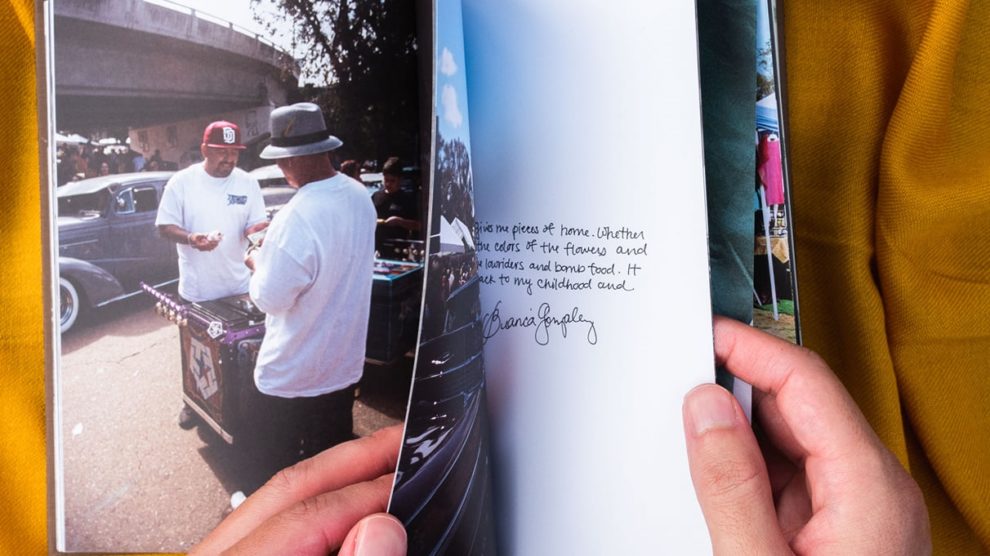 gives me pieces of home. Whether
the colors of the flowers and
lowriders and bomb food. It
back to my childhood and
Bianca Gonzalez